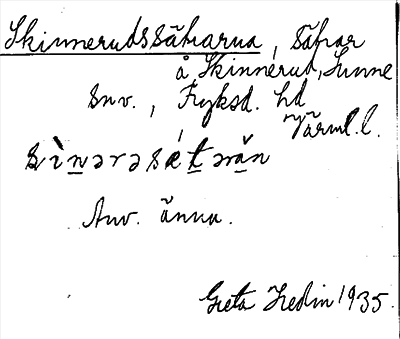 Skinnerudssätrarna, Sätrar
å Skinnerud, Sunne
snv., Fryksd. hd
Värml. l.
Anv. ännu.
Greta Hedin 1935.